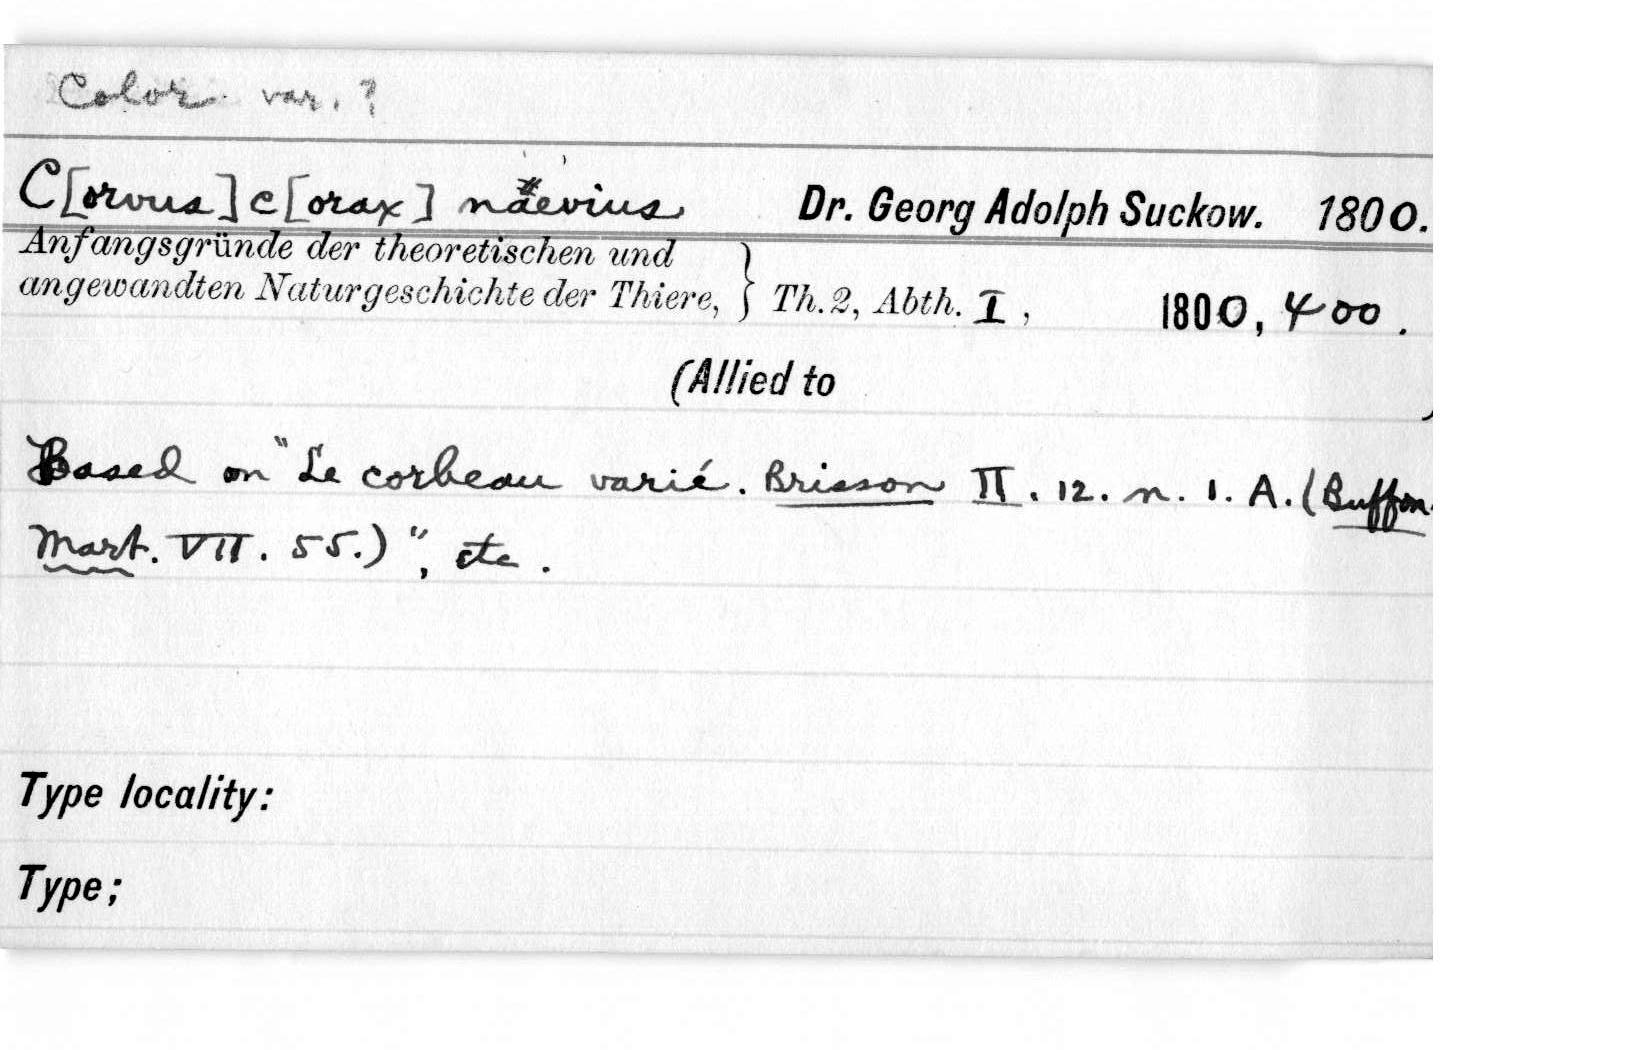 Color var.?
C[orvus] c[orax] naevius Dr. Georg Adolph Suckow. 1800.
Anfangsgründe der theoretischen und
angewandten Naturgeschichte der Thiere, } Th. 2, Abth. I, 1800, 400.
(Allied to )
Based on "Le corbeau varié. Brisson II. 12. n. 1. A. (Buffon.
Mart. VII. 55.)", etc.
Type locality:
Type;